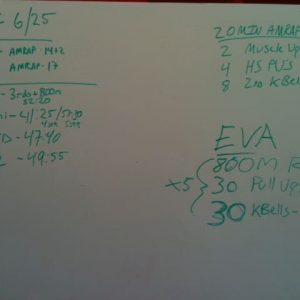 6/25
AMRAP - 14+2
AMRAP - 17
- 3rds + 800m
52:20
- 41:25/57:30
D - 47:40
- 49:55
20 MIN AMRAP
2 Muscle Up
4 HS PU's
8 2rd KBells
EVA
800M R
x5 30 Pull Up
30 KBells -